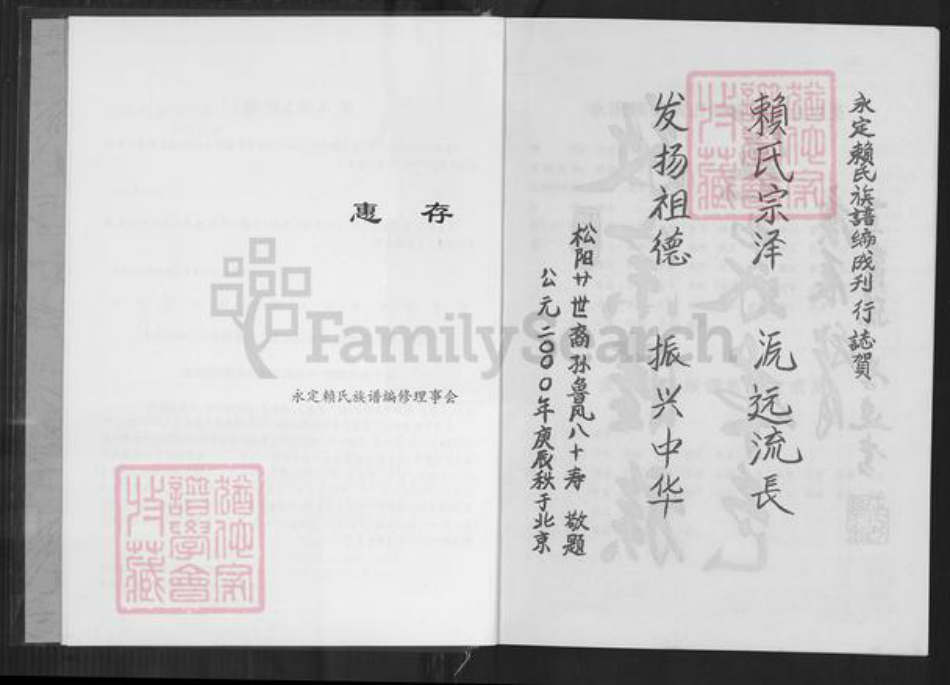 永定賴氏族譜編成刊行誌賀
賴氏宗泽 汇远流長
发扬祖德 振兴中华
松阳廿世裔孙鲁凤八十寿 敬题
公元二〇〇〇年庚辰秋于北京
惠 存
永定赖氏族谱编修理事会
FamilySearch
猶他家
譜學會
收藏
猶他家
譜學會
收藏